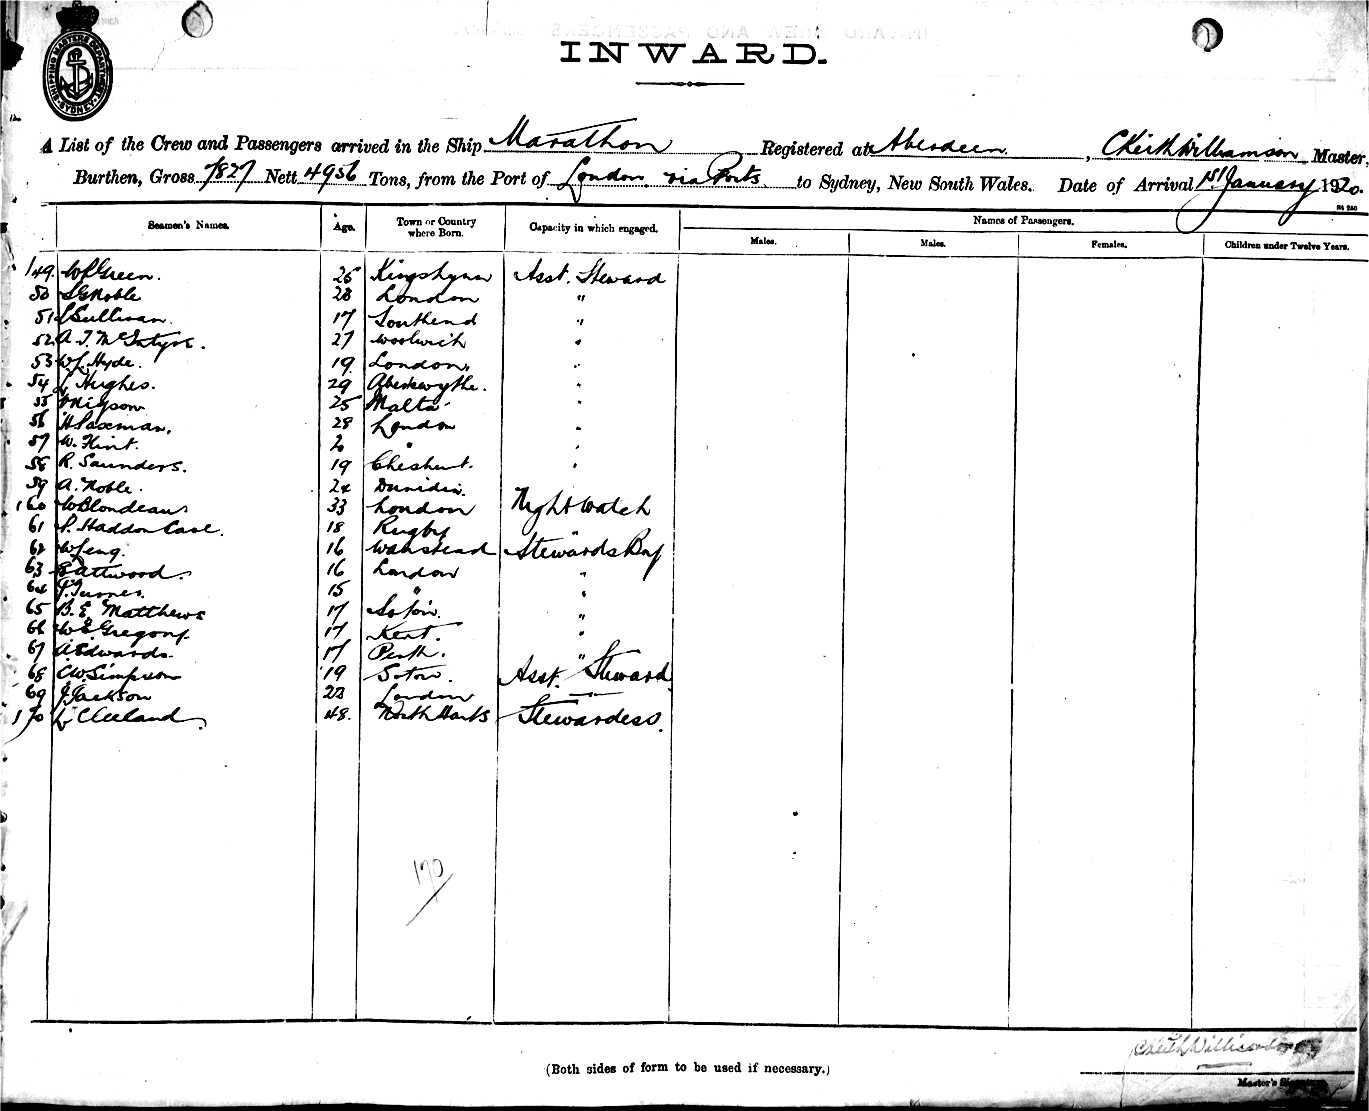 SHIPPING MASTERS DEPARTMENT SYDNEY
INWARD.
A List of the Crew and Passengers arrived in the Ship Marathon Registered at Aberdeen, C Keith Williamson Master,
Burthen, Gross 7827 Nett 4956 Tons, from the Port of London via Ports to Sydney, New South Wales. Date of Arrival 1st January 1920.
Seamen's Names. Age. Town or Country where Born. Capacity in which engaged. Names of Passengers.
Males. Males. Females. Children under Twelve Years.
149. W Green. 26 Kingslynn Asst. Steward
50 S G Noble 28 London "
51 Sullivan. 17 Southend "
52 A. J. McIntyre. 27 Woolwich "
53 W J. Hyde. 19 London. "
54 J. Hughes. 29 "
55 25 Malta "
56 H Paxman. 28 London "
57 W. Flint. 2 " "
58 R. Saunders. 19 Cheshunt. "
59 A. Noble. 24 Dunidin.
160 W Blondeau 33 London Night Watch
61 P. Haddon Cave. 18 Rugby "
62 W 16 Wanstead Stewards Boy
63 E Attwood. 16 London "
64 J. Turner. 15 " "
65 B. E. Matthews 17 "
66 W E Gregory. 17 Kent. "
67 A Edwards. 17 Perth. "
68 C W Simpson 19 S'ton. Asst. Steward
69 J. Jackson 23 London
170 L Cleeland 48. North Hants Stewardess.
170
(Both sides of form to be used if necessary.)
C Keith Williamson
Master's Signature.